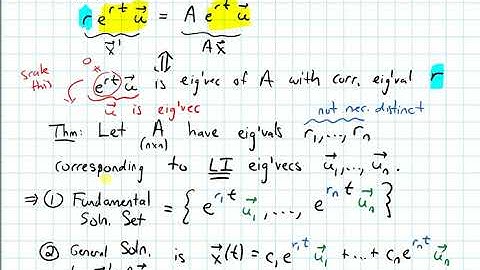 r e^{rt} u⃗ = A e^{rt} u⃗
x⃗' A x⃗
⇕
scale this ≠0 e^{rt} u⃗ is eig'vec of A with corr. eig'val r
u⃗ is eig'vec
not nec. distinct
Thm: Let A (n×n) have eig'vals r₁,...,rₙ
corresponding to LI eig'vecs u⃗₁,...,u⃗ₙ.
⇒ ① Fundamental Soln. Set = { e^{r₁t} u⃗₁,..., e^{rₙt} u⃗ₙ }
② General Soln. is x⃗(t) = c₁e^{r₁t} u⃗₁ +...+ cₙe^{rₙt} u⃗ₙ